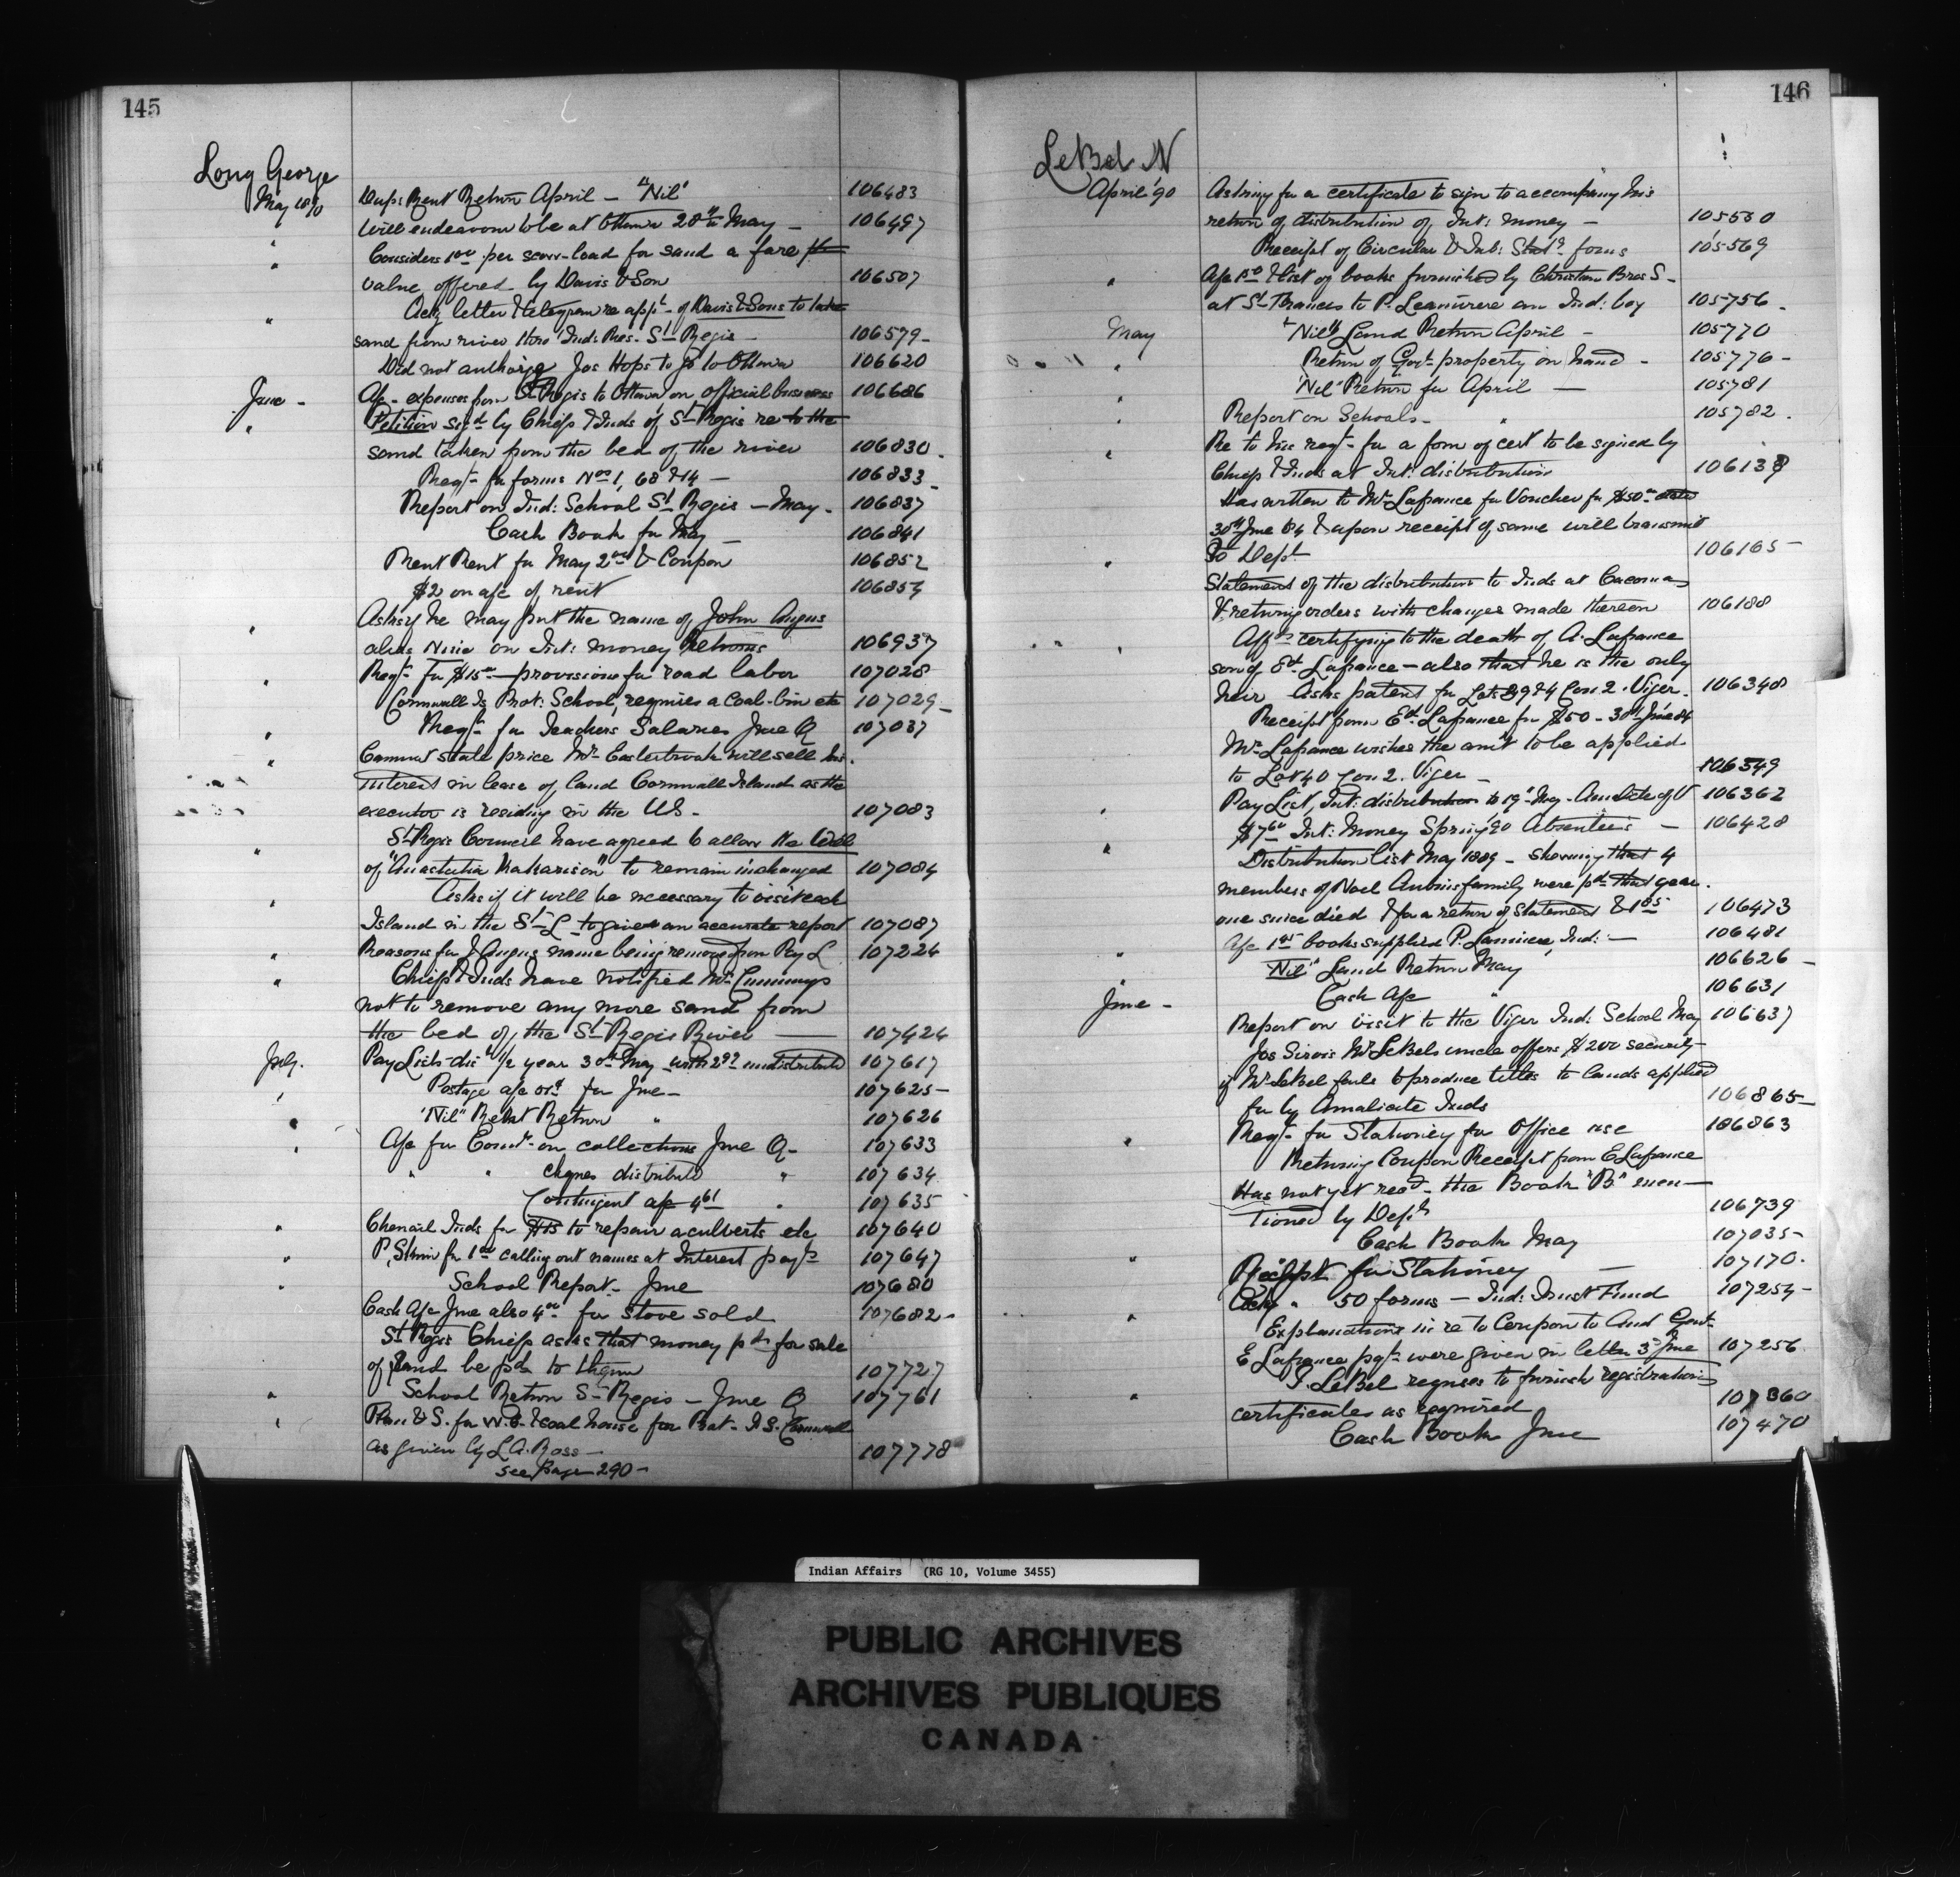 145
Long George
May 1890
Dup: Rent Return April — "Nil" 106483
Will endeavour to be at Ottawa 28th May — 106497
" Considers 1 00 per scow-load for sand a fare
value offered by Davis & Son 106507
" Ackg letter & telegram re appt. of Davis & Sons to take
sand from river thro' Ind: Res. St Regis — 106579
Did not authorize Jos Hops to go to Ottawa 106620
June - A/c - expenses from St Regis to Ottawa on official business 106686
" Petition sigd by Chiefs & Inds of St Regis re to the
sand taken from the bed of the river 106830
Reqt. for forms Nos 1, 68 & 14 — 106833
Report on Ind: School St Regis — May - 106837
Cash Book for May — 106841
Rent for May 2 00 & Coupon 106852
$2 on a/c of rent 106854
" Asks if he may put the name of John Angus
alias on Int: money Returns 106937
" Reqt. for $15 00 — provisions for road labor 107028
Cornwall Is Prot: School, requires a Coal-bin etc 107029
" Reqt. for Teachers Salaries June Q 107037
" Cannot state price Mr will sell his
interest in lease of land Cornwall Island as the
executor is residing in the U.S. - 107083
" St Regis Council have agreed to allow the Will
of "Anastatia " to remain unchanged 107084
" Asks if it will be necessary to visit each
Island in the St L to give an accurate report 107087
" Reasons for J Angus name being removed from Pay L 107224
" Chiefs & Inds have notified Mr Cummings
not to remove any more sand from
the bed of the St Regis River — 107424
July. Pay Lists dist. 1/2 year 30th May with undistributed 107617
" Postage a/c for June - 107625
" "Nil" Rent Return " 107626
" A/c for Comn. on collections June Q - 107633
" " cheques distributed " 107634
Contingent a/c 4 61 " 107635
" Chenail Inds for $15 to repair a culverts etc 107640
" P. for 1 00 calling out names at Interest payts 107647
" School Report - June 107680
Cash A/c June also 4 00 for stove sold 107682
St Regis Chiefs asks that money pd for sale
of sand be pd to them 107727
" School Return St Regis — June Q 107761
" Plan & S. for W.C. & coal house for Prot. I.S. Cornwall
as given by L.A. Ross — 107778
see Page 290 —
146
LeBel N
April '90 Asking for a certificate to sign to accompany his
return of distribution of Int: money — 105560
Receipt of Circular & Tab: Stats forms 105569
" A/c & list of books furnished by Christian Bros S -
at St Frances to P. an Ind: boy 105756
May "Nil" Land Return April — 105770
" Return of Govt property on hand - 105776
" "Nil" Return for April — 105781
" Report on Schools - " 105782
" Re to his reqt. for a form of cert to be signed by
Chiefs & Inds at Int: distribution 106138
Has written to Mr Lafrance for Voucher for $50 00 dated
30th June 84 & upon receipt of same will transmit
" to Dept. 106165
Statement of the distribution to Inds at Cacouna
& returning orders with changes made thereon 106188
" Affts certifying to the death of A. Lafrance
son of Ed. Lafrance — also that he is the only
heir Asks patent for Lots 39 & 4 Con 2. Viger. 106348
Receipt from Ed. Lafrance for $50 - 30th June 84
Mr. Lafrance wishes the amt to be applied
to Lot 40 Con 2. Viger — 106349
" Pay List, Int: distribution to 19th May - Amalecite of V 106362
$7 60 Int: Money Spring '90 Absentees — 106428
" Distribution list May 1889 - showing that 4
members of Noel Aubin's family were pd that year.
one since died & for a return of Statement 106473
A/c books supplied P. Ind: — 106481
" "Nil" Land Return May 106626
" Cash A/c " 106631
June - Report on visit to the Viger Ind: School May 106637
Jos Sirois Mr LeBels uncle offers $200 security
if Mr LeBel fails to produce titles to lands applied
for by Amalicite Inds 106865
" Reqt. for Stationery for Office use 106863
Returning Coupon Receipt from E Lafrance
Has not yet recd. the Book "B" men—
tioned by Dept. 106739
Cash Book May 107035
" Receipt for Stationery — 107170
Ackg " 50 forms — Ind: Trust Fund 107254
" Explanations in re to Coupon to And Govt.
E Lafrance pgt. were given in letter 3d June 107256
" J. LeBel refuses to furnish registration
certificates as required 107360
Cash Book June 107470
Indian Affairs (RG 10, Volume 3455)
PUBLIC ARCHIVES
ARCHIVES PUBLIQUES
CANADA